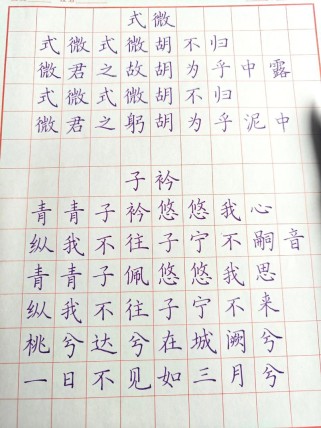 式微
式微式微胡不归
微君之故胡为乎中露
式微式微胡不归
微君之躬胡为乎泥中
子衿
青青子衿悠悠我心
纵我不往子宁不嗣音
青青子佩悠悠我思
纵我不往子宁不来
桃兮达兮在城阙兮
一日不见如三月兮